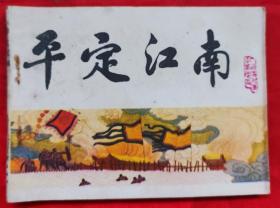 平定江南